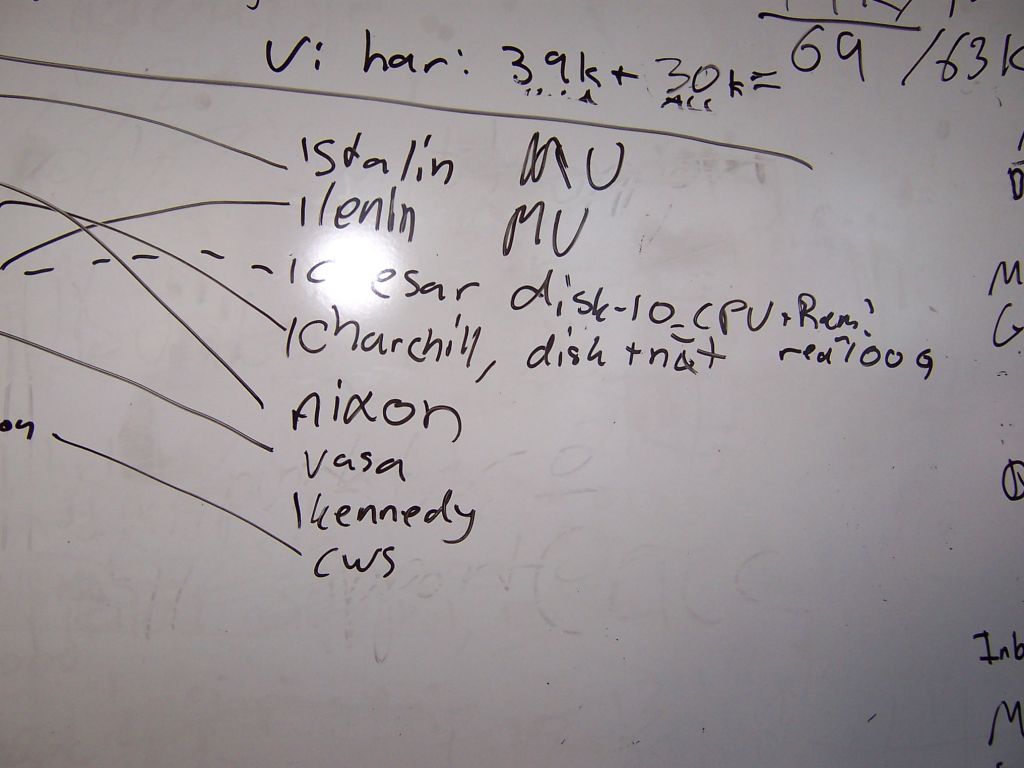 Vi har: 39k + 30k = 69 /63k
1Stalin MV
1lenin MV
1C esar disk-IO CPU+Ram?
1Charchill, disk +nät red 100g
nixon
vasa
1kennedy
cws
Inb